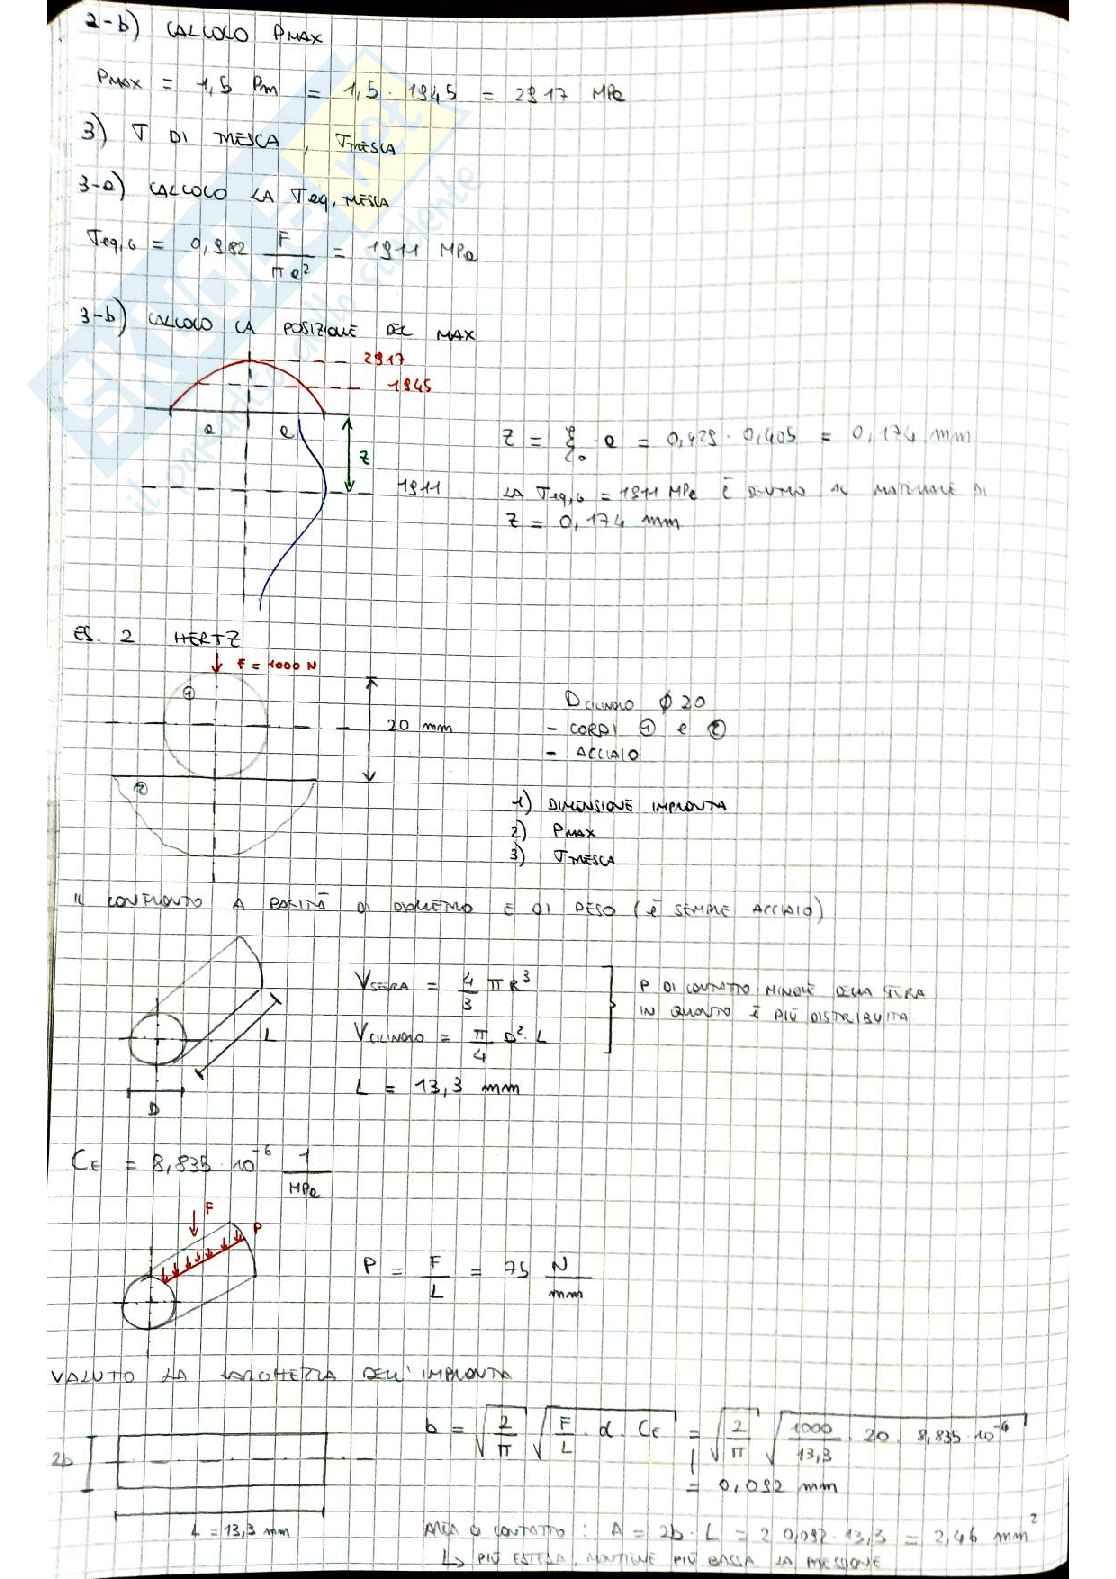 2-b) CALCOLO PMAX
PMAX = 1,5 Pm = 1,5 · 1945 = 2917 MPa
3) σ DI TRESCA, σTRESCA
3-a) CALCOLO LA σeq,TRESCA
σeq,G = 0,982 F / πa² = 1911 MPa
3-b) CALCOLO LA POSIZIONE DEL MAX
2917
1945
a a
z
1911
z = ξ₀ · a = 0,429 · 0,405 = 0,174 mm
LA σeq,G = 1911 MPa È DENTRO IL MATERIALE DI
z = 0,174 mm
ES. 2 HERTZ
F = 1000 N
1
20 mm
2
DCILINDRO ϕ 20
- CORPI 1 e 2
- ACCIAIO
1) DIMENSIONE IMPRONTA
2) PMAX
3) σTRESCA
IL CONFRONTO A PARITÀ DI DIAMETRO E DI PESO (È SEMPRE ACCIAIO)
L
D
VSFERA = 4/3 π R³
VCILINDRO = π/4 D² · L
L = 13,3 mm
P DI CONTATTO MINORE DELLA SFERA
IN QUANTO È PIÙ DISTRIBUITA
CE = 8,835 · 10⁻⁶ 1/MPa
F
P
P = F/L = 75 N/mm
VALUTO LA LARGHEZZA DELL'IMPRONTA
2b
L = 13,3 mm
b = √(2/π) √(F/L · d · CE) = √(2/π) √(1000/13,3 · 20 · 8,835 · 10⁻⁶)
= 0,092 mm
AREA DI CONTATTO: A = 2b · L = 2 · 0,092 · 13,3 = 2,46 mm²
↳ PIÙ ESTESA, MANTIENE PIÙ BASSA LA PRESSIONE